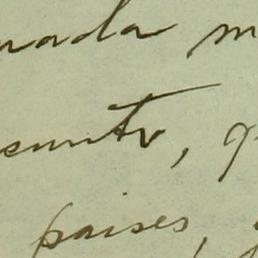 nada m
sunto, q
paises,